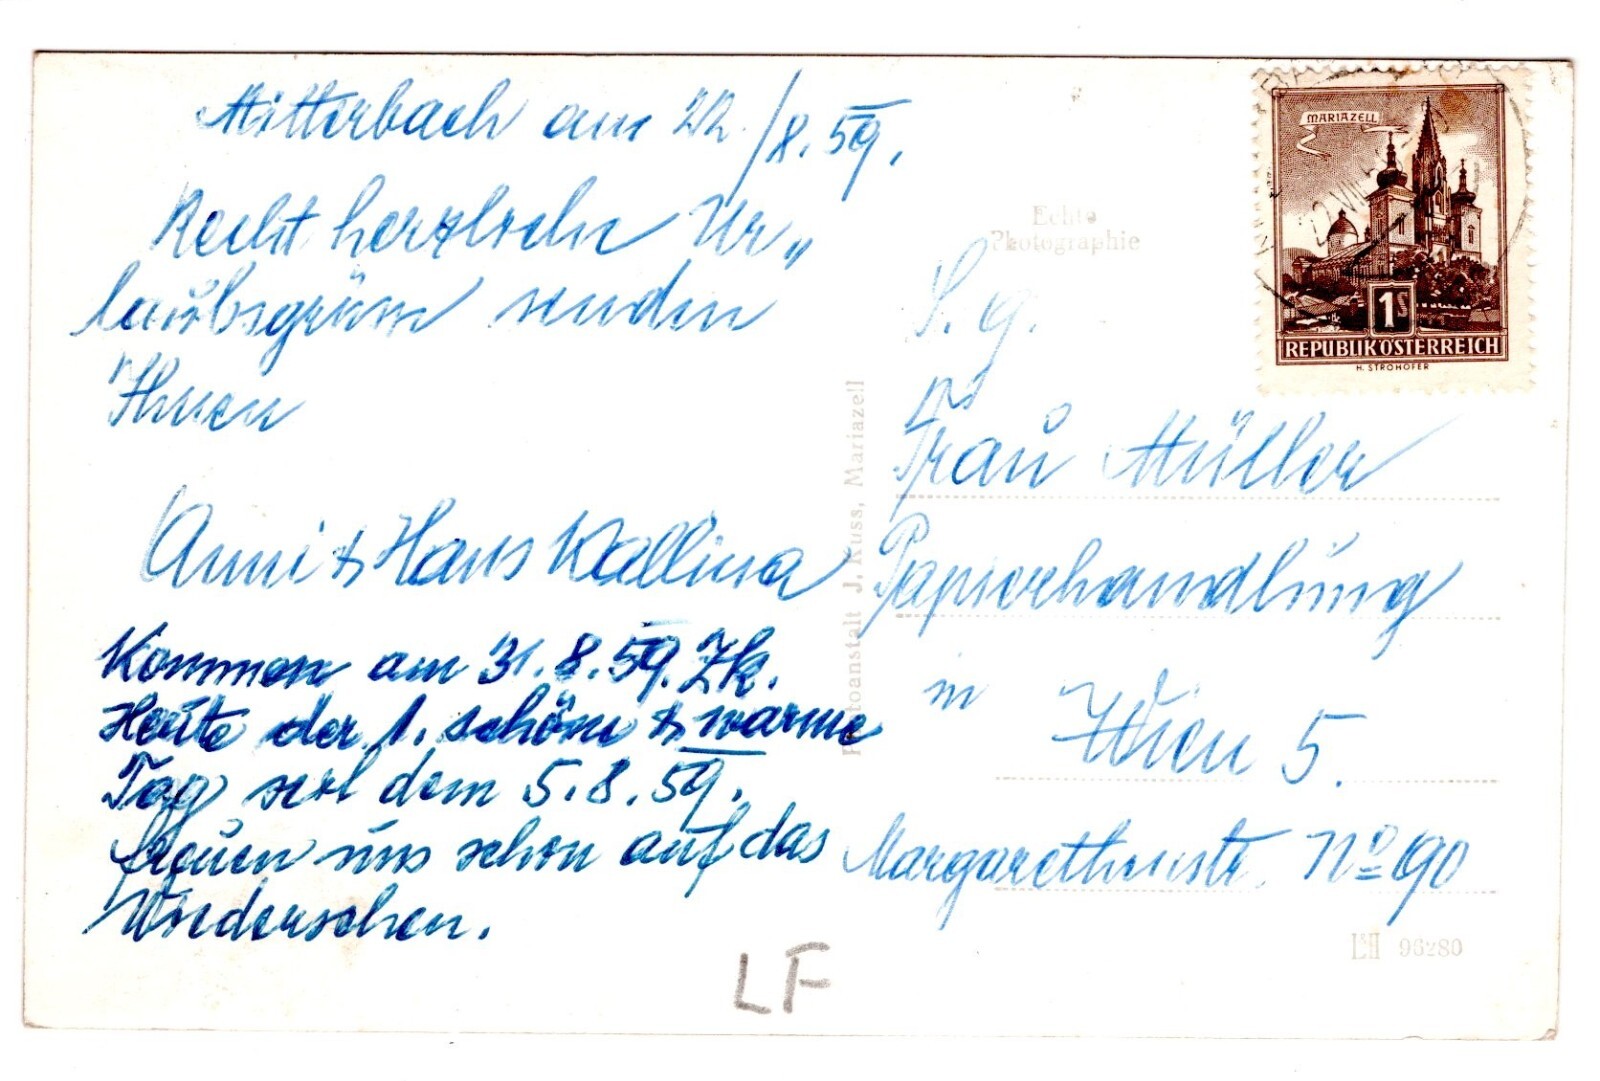 Mitterbach am 22/8.59.
Recht herzliche Ur„
laubsgrüsse senden
Ihnen
Anni & Hans Kallina
Kommen am 31.8.59. Zk.
Heute der 1. schöne & warme
Tag seit dem 5.8.59.
freuen uns schon auf das
Wiedersehen.
Echte
Photographie
MARIAZELL
1S
REPUBLIK ÖSTERREICH
H. STROHOFER
S. g.
Frau Müller
Papierhandlung
in Wien 5.
Margarethenstr. No 90
Photoanstalt J. Kuss, Mariazell
96280
LF